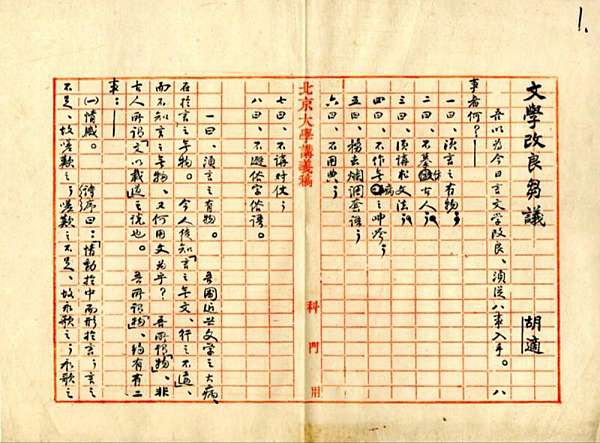 1.
文學改良芻議　胡適
吾以為今日言文學改良、須從八事入手。八
事者何？——
一曰、須言之有物。
二曰、不摹仿古人；
三曰、須講求文法；
四曰、不作無病之呻吟；
五曰、務去爛調套語；
六曰、不用典；
北京大學講義稿　科　門用
七曰、不講對仗；
八曰、不避俗字俗語。
一曰、須言之有物。　吾國近世文學之大病、
在於言之無物。　今人徒知「言之無文、行之不遠」、
而不知言之無物、又何用文為乎？　吾所謂「物」、非
古人所謂「文以載道」之說也。　吾所謂「物」、約有二
事：——
（一）情感。　詩序曰：「情動於中而形於言；言之
不足、故嗟歎之；嗟歎之不足、故永歌之；永歌之